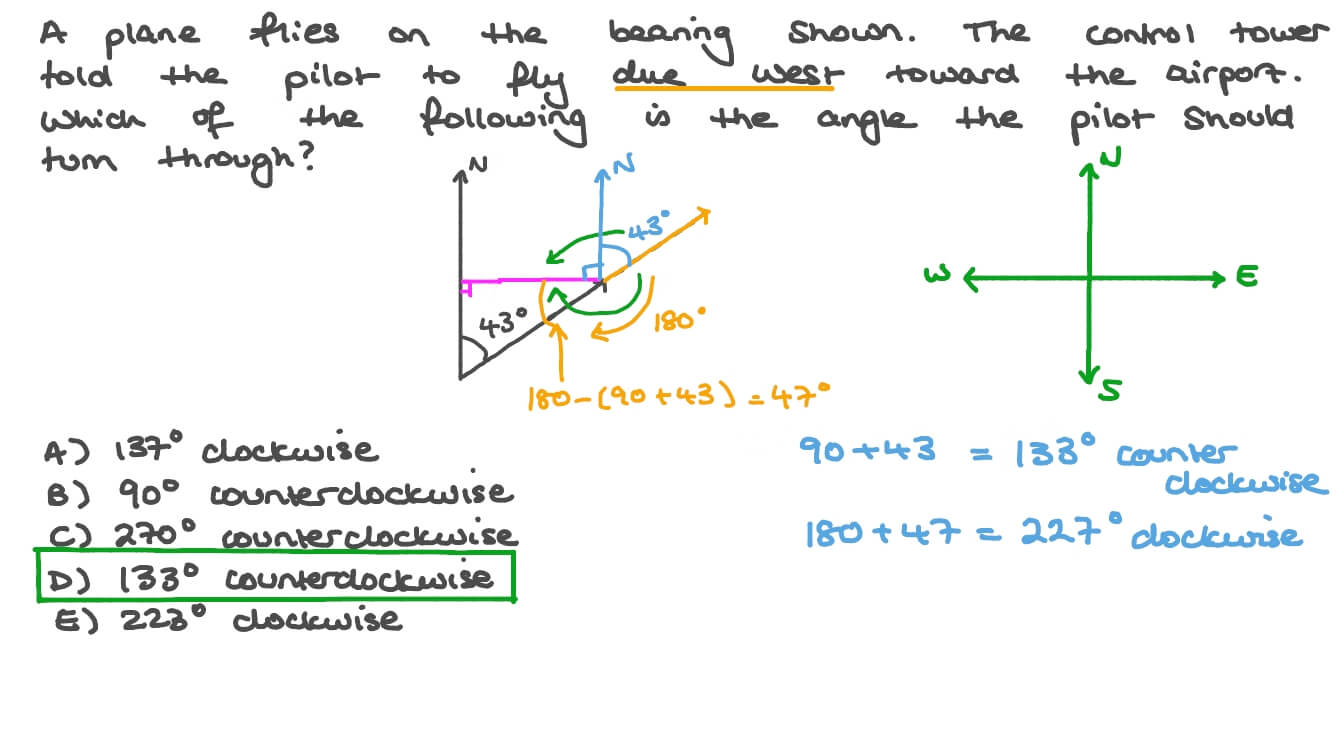 A plane flies on the bearing shown. The control tower
told the pilot to fly due west toward the airport.
which of the following is the angle the pilot should
turn through?
N
N
N
43°
W
E
43°
180°
S
180-(90+43)=47°
A) 137° clockwise
90+43 = 133° counter
clockwise
B) 90° counterclockwise
C) 270° counterclockwise
180+47 = 227° clockwise
D) 133° counterclockwise
E) 223° clockwise